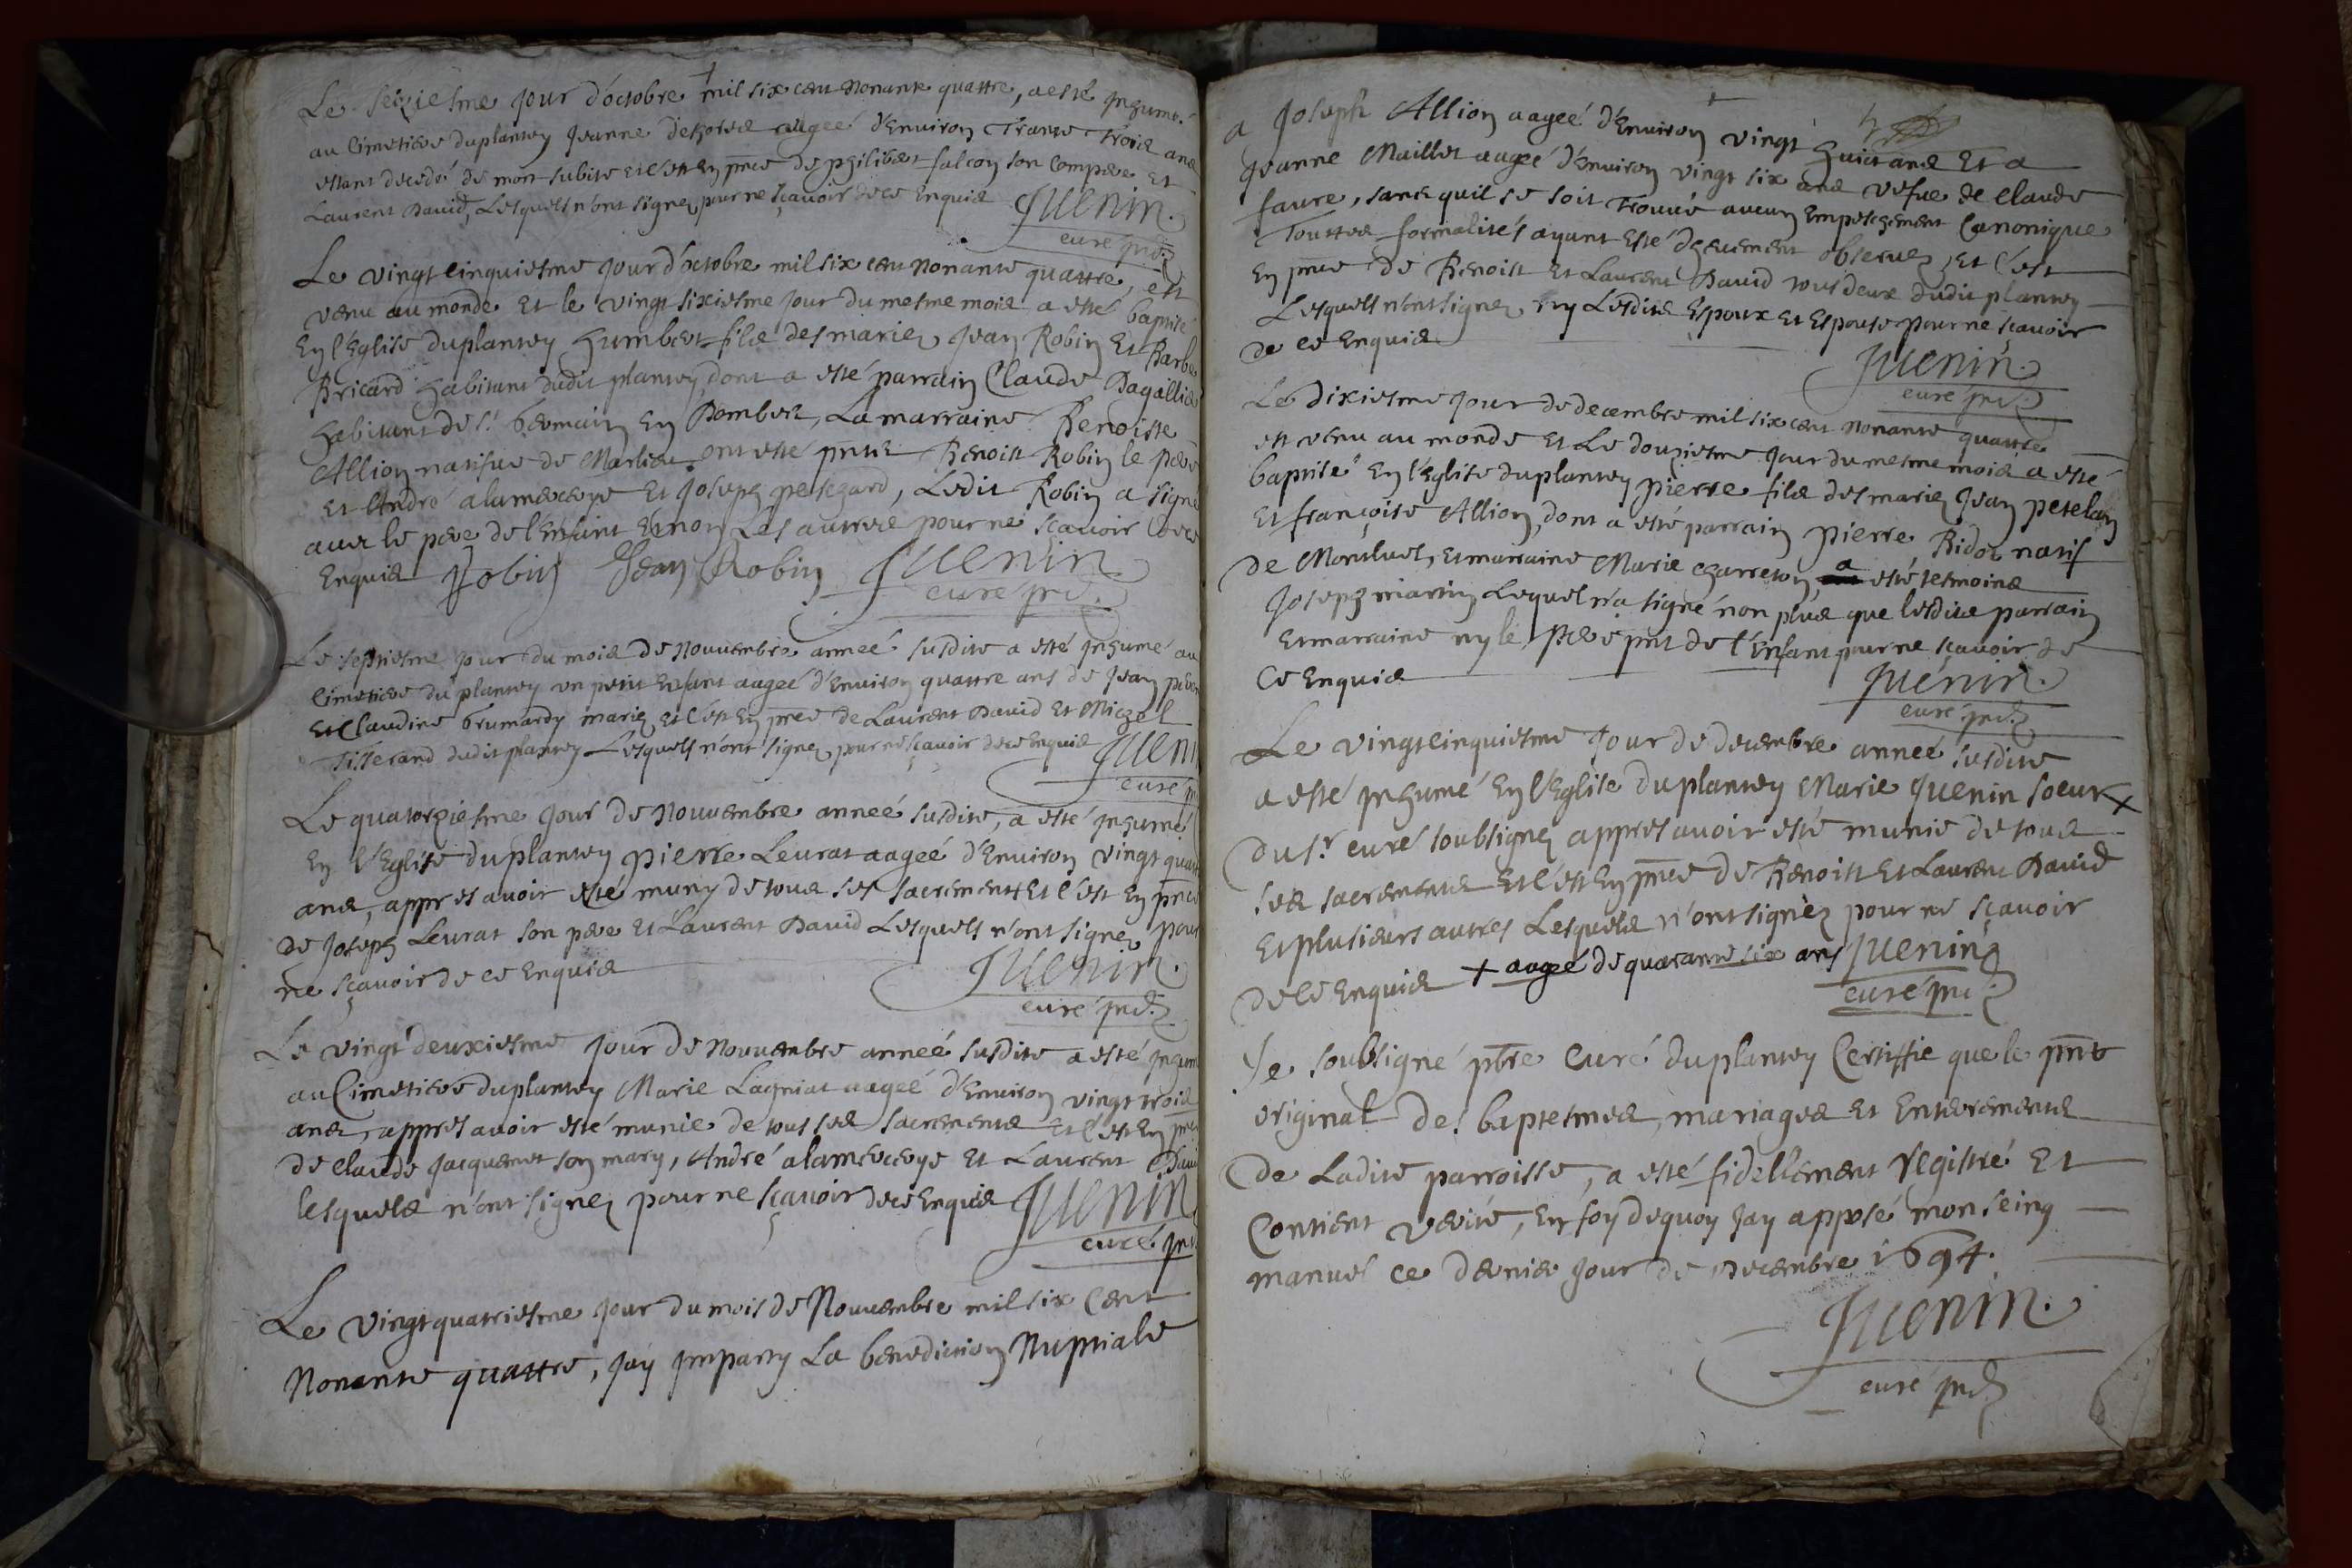 Le seiziesme jour d'octobre mil six cent nonante quattre, a esté inhumé
au Cimetiere du plantey Jeanne aagée d'Environ Trante Trois ans
estant decedé de mort subite et c'est En pnce de philibert falcon son Compere Et
Laurent David, Lesquels n'ont signez pour ne sçavoir de ce Enquis
Juenin.
curé pnt.
Le vingt cinquiesme jour d'octobre mil six cent nonante quattre, est
venu au monde Et le vingt sixiesme jour du mesme mois a esté baptisé
En l'Eglise du plantey humbert fils des mariez Jean Robin Et Barbe
Bricard habitant dudit plantey dont a esté parrain Claude Dagallier
habitant de St. Germain En Dombes, La marraine Benoiste
Allion natifue de Marlieu, ont esté pnts Benoist Robin le pere
Et André alamercerye Et Joseph peschard, Ledit Robin a signé
avec le pere de l'Enfant Et non Les autres pour ne sçavoir de ce
Enquis Robin Jean Robin Juenin
curé pnt.
Le septiesme jour du mois de Nouuembre anneé susdite a esté inhumé au
Cimetiere du plantey un petit Enfant aageé d'Enuiron quattre ans de Jean
Et Claudine brumardy mariez et c'est En pnce de Laurent David Et Michel
Tisserand dudit plantey Lesquels n'ont signez pour ne sçavoir de ce Enquis
Juenin
curé
Le quatorziesme jour de Nouuembre anneé susdite, a esté inhumé
En l'Eglise du plantey pierre Leurat aageé d'Environ Vingt quatre
ans, appres avoir esté muny de tous ses sacrements Et c'est En pnce
de Joseph Leurat son pere Et Laurent David Lesquels n'ont signez pour
ne sçavoir de ce Enquis
Juenin.
curé pnt.
Le vingt deuxiesme jour de Nouuembre anneé susdite a esté inhumé
au Cimetiere du plantey Marie Lagniat aageé d'Environ vingt trois
ans, appres avoir esté munie de tous ses sacrements Et c'est En pnce
de Claude Jacquemet son mary, André alamercerye Et Laurent David
lesquels n'ont signez pour ne sçavoir de ce Enquis
Juenin
curé pnt
Le Vingt quatriesme jour du mois de Nouuembre mil six Cent
Nonante quattre, jay imparty La benediction Nuptiale
a Joseph Allion aageé d'Environ vingt huict ans Et a
Jeanne Maillet aageé d'environ vingt six ans vefue de Claude
faure, sans quil se soit trouué aucun Empeschement Canonique
Touttes formalités ayant esté deuement obseruez, Et c'est
En pnce de Benoist Et Laurent David tous deux dudit plantey
Lesquels n'ont signez ny Lesdits Espoux Et Espouse pour ne sçavoir
de ce Enquis
Juenin.
curé pnt.
Le Dixiesme jour de decembre mil six cent nonante quattre
est venu au monde Et Le douziesme jour du mesme mois a esté
baptisé En l'Eglise du plantey pierre fils des mariez Jean petelan
Et françoise Allion, dont a esté parrain pierre Bidor natif
de Montluel, Et marraine Marie Charreton, a esté tesmoins
Joseph martin Lequel n'a signé non plus que lesdits parrain
Et marraine ny le pere pnt de l'Enfant pour ne sçavoir de
Ce Enquis
Juenin.
curé pnt.
Le vingt cinquiesme jour de decembre anneé susdite
a esté inhumé En l'Eglise du plantey Marie Juenin soeur +
du sr. curé soubsignez appres avoir esté munie de tous
ses sacrements Et c'est En pnce de Benoist Et Laurent David
Et plusieurs autres Lesquels n'ont signéz pour ne sçavoir
de ce Enquis + aageé de quarante six ans Juenin
curé pnt
Je soubsigné pbre Curé du plantey Certiffie que le pnt
original de baptesmes, mariages Et Enterements
de Ladite parroisse, a esté fidellement Registré Et
Contient verité, En foy dequoy jay apposé mon seing
manuel ce dernier jour de Decembre 1694.
Juenin.
curé pnt